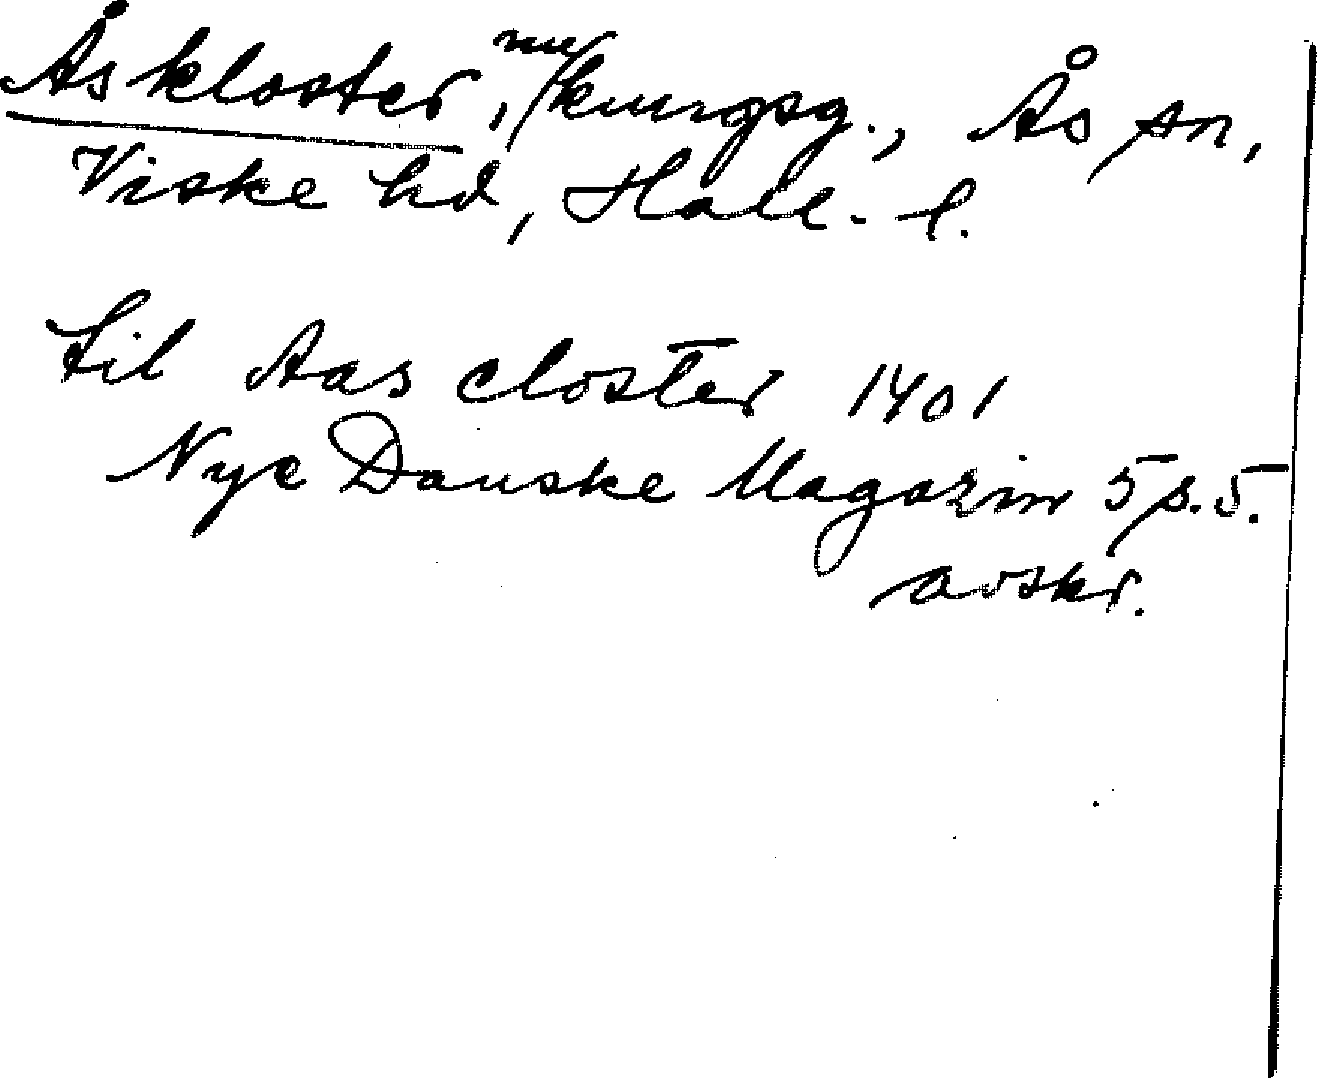 Åskloster, nu kungsg., Ås sn,
Viske hd, Hall. l.
til Aas closter 1401
Nye Danske Magazin 5 s. 5.
avskr.